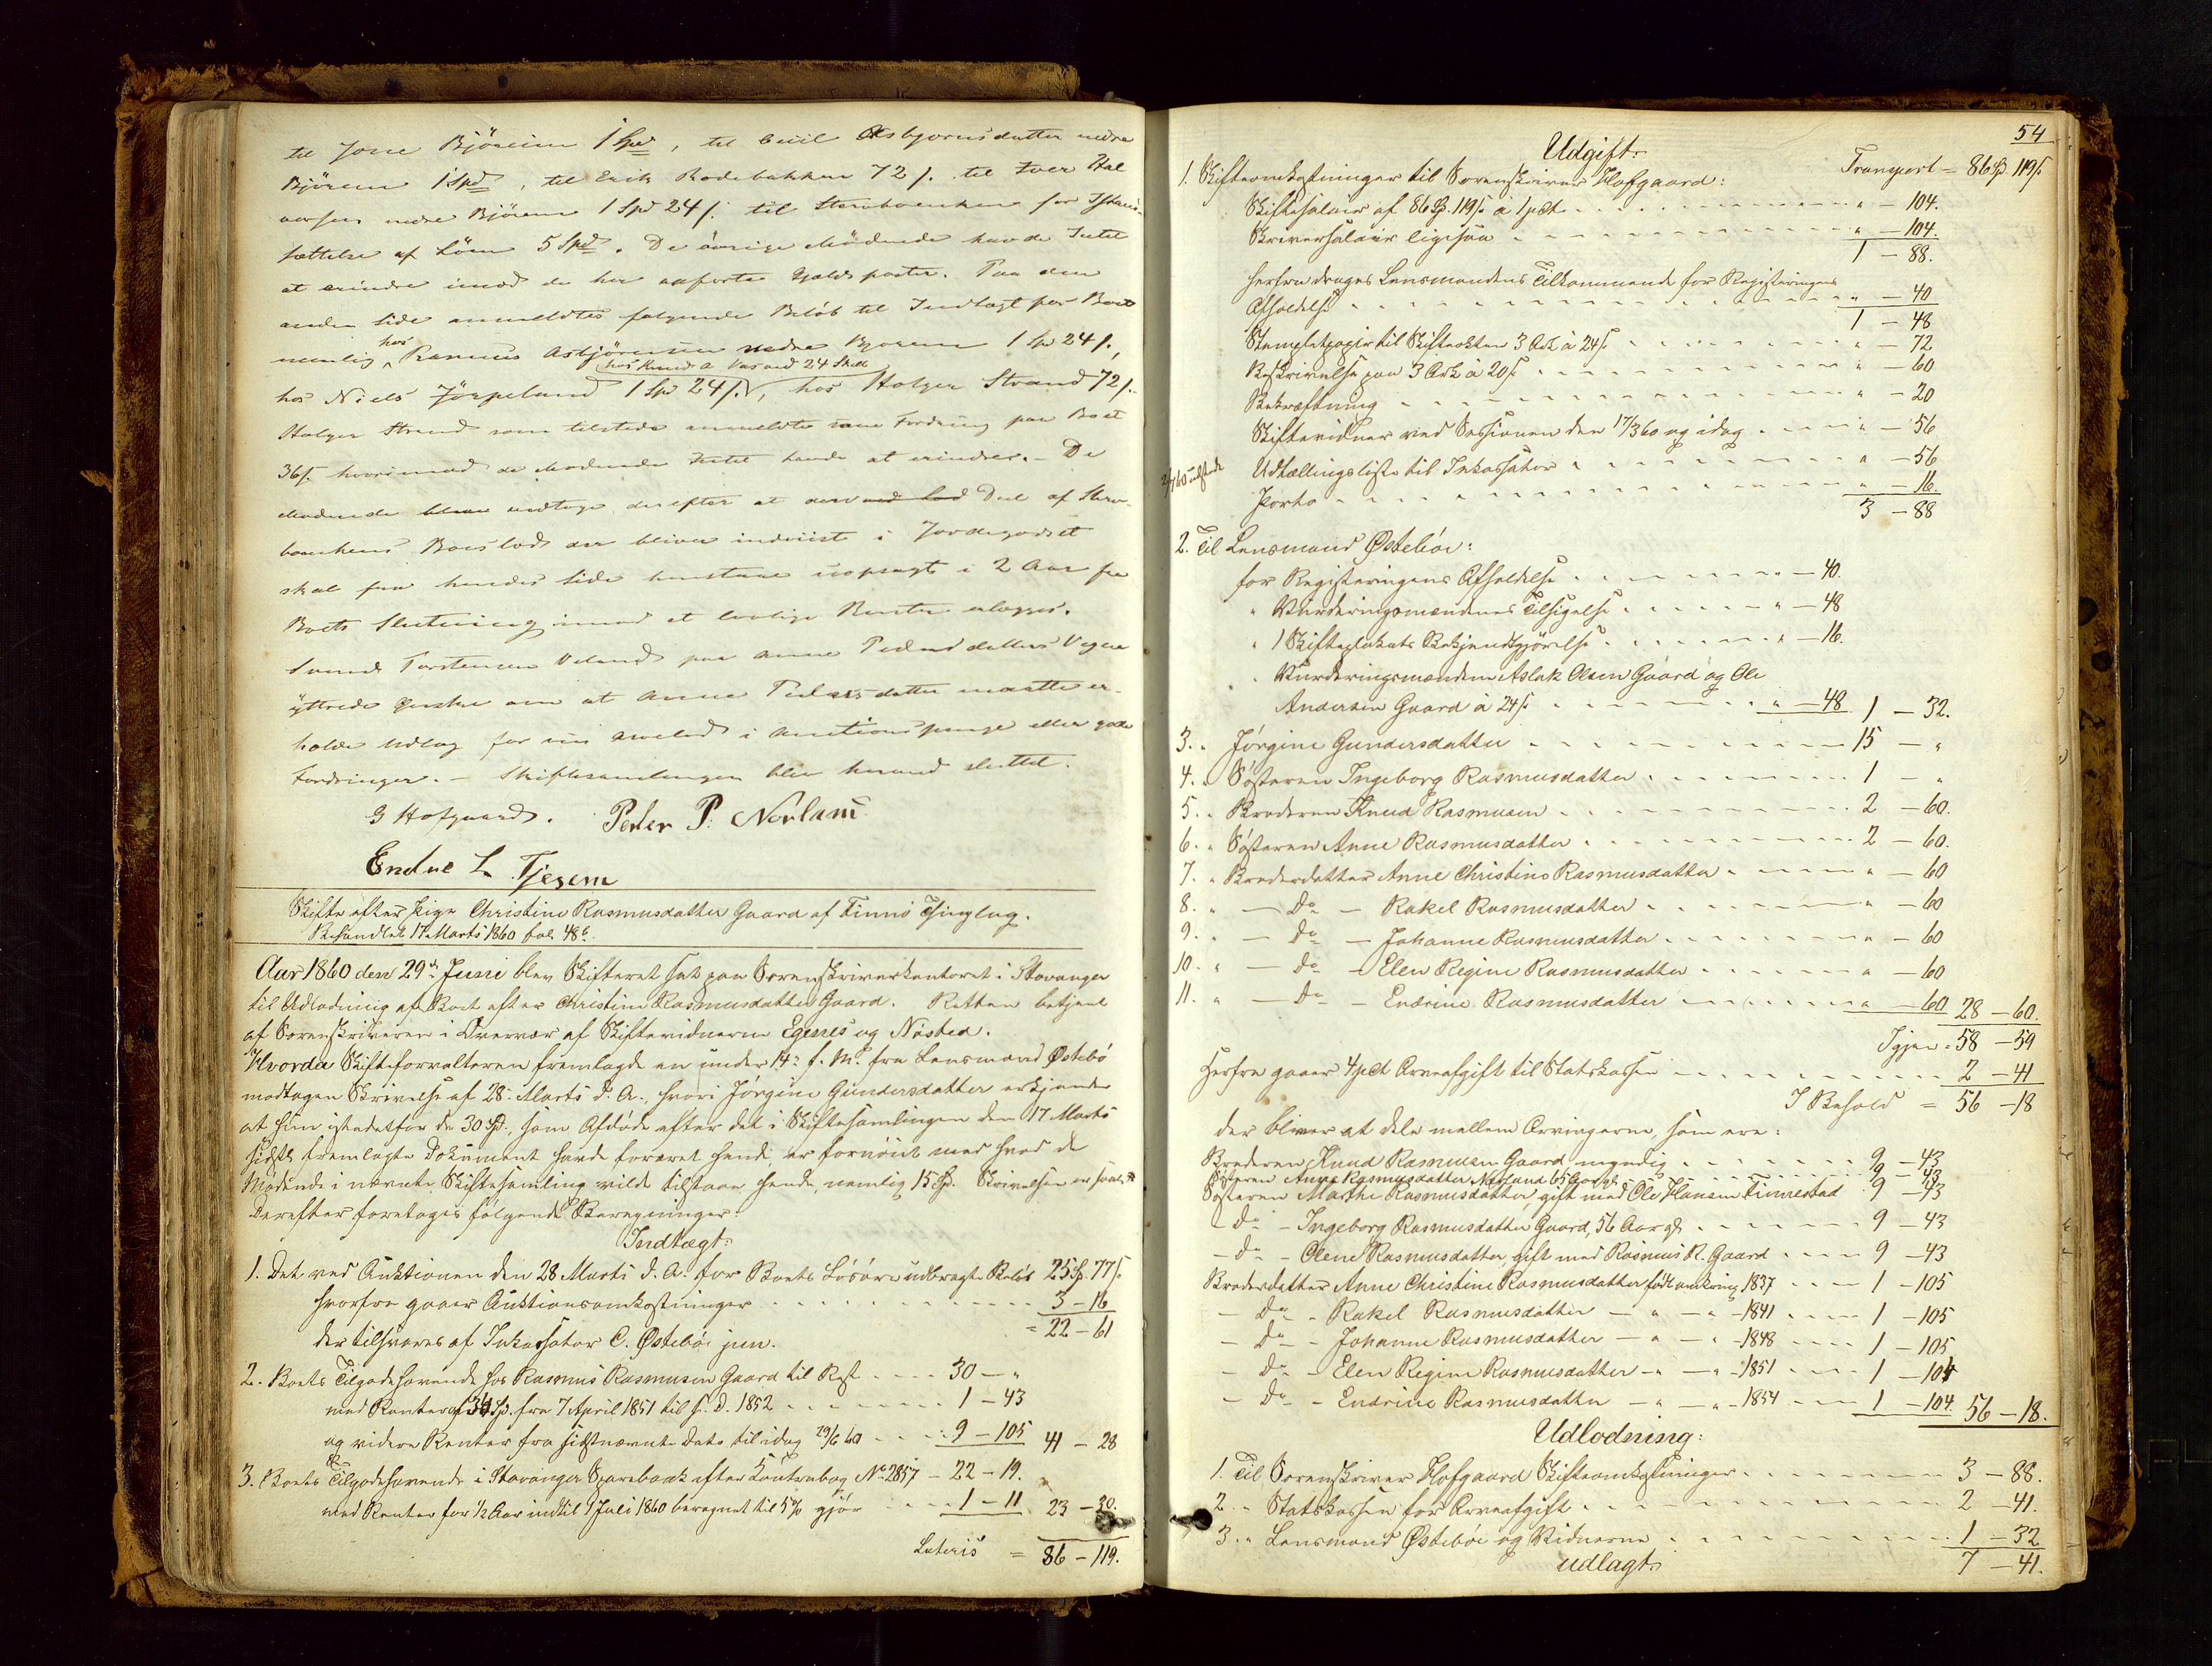 til Jone Björeim 1 Spd, til Eiiel Asbjørnsdatter nedre
Björeim 1 Spd, til Erik Rodebakken 72 s. til Iver Hal
versen nedre Björeim 1 Spd 24 s. til Stervboenken for
sættelse af Löm 5 Spd. De övrige Mödende havde Intet
at erindre imod de her anförte Gjeldsposter. Paa den
anden Side anmeldtes fölgende Belöb til Indtægt for Boet
nemlig hos Rasmus Asbjörnsen nedre Björeim 1 Sp 24 s.,
hos Knud a Vasved 24 Skill
hos Niels Jörpeland 1 Sp 24 s., hos Holger Strand 72 s.
Holger Strand som tilstede anmeldte sin Fordring paa Boet
36 s. hvorimod de Mödende Intet havde at erindre. De
Mödende vedtoge derefter at den Deel af Sterv-
boenkens Boeslod der bliver indviist i Jordegodset
skal fra hendes Side henstaae uopsagt i 2 Aar fra
Boets Slutning imod at lovlige Renter erlægges.
Svend Torstensen Veland paa Anne Pedersdatters Vegne
yttrede Ønske om at Anne Pedersdatter maatte er-
holde Udlæg for sin Arvelod i Auctionspenge eller gode
Fordringer. — Skiftesamlingen blev herved sluttet.
G Hofgaard. Peder P. Norland
Endre L. Tjesem
Skifte efter Pige Christine Rasmusdatter Gaard af Finnö Thinglag.
Behandlet 17 Marts 1860 fol. 48 b.
Aar 1860 den 29de Juni blev Skifteret sat paa Sorenskriverkontoret i Stavanger
til Udlodning af Boet efter Christine Rasmusdatter Gaard. Retten betjent
af Sorenskriveren i Overvær af Skiftevidnerne Egenes og Næsted.
Hvorda Skifteforvalteren fremlagde en under 14de f. M. fra Lensmand Østebö
modtagen Skrivelse af 28 Marts d. A., hvori Jörgine Gundersdatter erkjender
at hun istedetfor de 30 Spd., som Afdöde efter det i Skiftesamlingen den 17 Marts
sidstl. fremlagte Dokument havde foræret hende, er fornöiet med hvad de
Mödende i nævnte Skiftesamling vilde tilstaae hende, nemlig 15 Spd. Skrivelsen er saal.
Derefter foretoges følgende Beregninger:
Indtægt:
1. Det ved Auktionen den 28 Marts d. A. for Boets Lösöre udbragte Belöb 25 Sp. 77 s.
hvorfra gaaer Auktionsomkostninger 3 – 16
der tilsvares af Inkassator C. Østebö jun. = 22 – 61
2. Boets Tilgodehavende hos Rasmus Rasmusen Gaard til Rest 30 – "
med Renter af 34 Sp. fra 7 April 1851 til s. D. 1852 1 – 43
og videre Renter fra sidstnævnte Dato til idag 29/6 60 9 – 105 41 – 28
3. Boets Tilgodehavende i Stavanger Sparebank efter Kontrabog No 2857 – 22 – 19.
med Renter for 1/2 Aar indtil 1 Juli 1860 beregnet til 5 % gjör 1 – 11 23 – 30.
Lateris = 86 – 119.
54
Udgift:
Transport = 86 Sp. 119 s
1. Skifteomkostninger til Sorenskriver Hofgaard:
Skiftesalair af 86 Sp. 119 s. à 1 pCt " – 104.
Skriversalair ligesaa " – 104.
1 – 88.
herfra drages Lensmandens Tilkommende for Registeringens
Afholdelse " – 40
1 – 48
Stempletpapir til Skifteakten 3 Ark à 24 s. " – 72
Beskrivelse paa 3 Ark à 20 s " – 60
Bekræftning " – 20
Skiftevidner ved Sessionen den 17/3 60 og idag " – 56
Udtællingsliste til Inkassator " – 56
Porto " – 16.
3 – 88
2. Til Lensmand Østeböe:
for Registeringens Afholdelse " – 40.
" Vurderingsmændenes Tilsigelse " – 48
" 1 Skifteplakats Bekjendtgjörelse " – 16.
" Vurderingsmændene Aslak Olsen Gaard og Ole
Andersen Gaard à 24 s. " – 48 1 – 32.
3. " Jörgine Gundersdatter 15 – "
4. " Søsteren Ingeborg Rasmusdatter 1 – "
5. " Broderen Knud Rasmusen 2 – 60.
6. " Søsteren Anne Rasmusdatter 2 – 60.
7. " Broderdatter Anne Christine Rasmusdatter " – 60
8. " – Do – Rakel Rasmusdatter " – 60
9. " – Do – Johanne Rasmusdatter " – 60
10. " – Do – Elen Regine Rasmusdatter " – 60
11. " – Do – Endrine Rasmusdatter " – 60 28 – 60.
Igjen = 58 – 59
Herfra gaaer 4 pCt Arveafgift til Statskassen 2 – 41
I Behold = 56 – 18
der bliver at dele mellem Arvingerne, som ere:
Broderen Knud Rasmusen Gaard, myndig 9 – 43
Søsteren Anne Rasmusdatter Nesland 65 Aar gl. 9 – 43
Søsteren Marthe Rasmusdatter, gift med Ole Hansen Finnestad 9 – 43
– Do – Ingeborg Rasmusdatter Gaard, 56 Aar gl. 9 – 43
– Do – Olene Rasmusdatter, gift med Rasmus R. Gaard 9 – 43
Broderdatter Anne Christine Rasmusdatter født omkring 1837 1 – 105
– Do – Rakel Rasmusdatter – " – " – 1841 1 – 105
– Do – Johanne Rasmusdatter – " – " 1848 1 – 105
– Do – Elen Regine Rasmusdatter – " – " 1851 1 – 104
– Do – Endrine Rasmusdatter – " – " – 1854 1 – 104. 56 – 18.
Udlodning:
1. Til Sorenskriver Hofgaard Skifteomkostninger 3 – 88.
2. " Statskassen for Arveafgift 2 – 41.
3. " Lensmand Østeböe og Vidnerne 1 – 32
udlagt: 7 – 41.